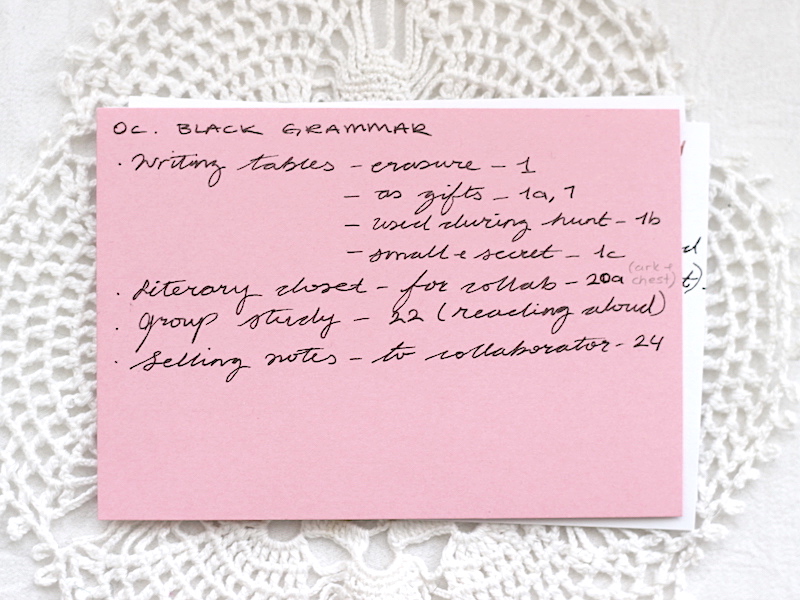 OC. BLACK GRAMMAR
· Writing tables – erasure – 1
– as gifts – 1a, 7
– used during hunt – 1b
– small + secret – 1c
· Literary closet – for collab – 20a (ark + chest)
· Group study – 22 (reading aloud)
· Selling notes – to collaborator – 24
d
t).